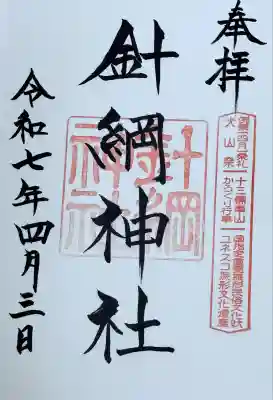 奉拝
針綱神社
令和七年四月三日
針綱
神社
犬山祭
十三輌車山
からくり行事
ユネスコ無形文化遺産